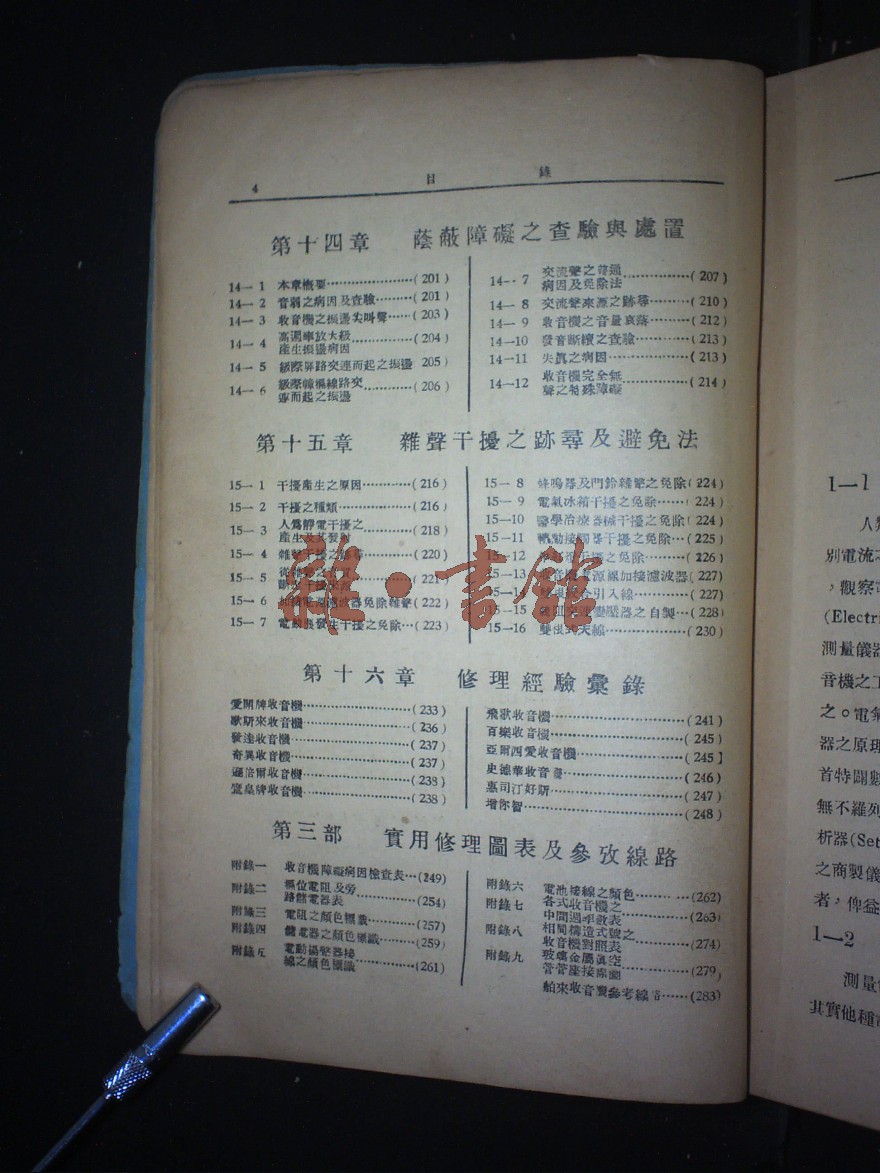 4 目 錄
第十四章 蔭蔽障礙之查驗與處置
14—1 本章概要………(201)
14—2 音弱之病因及查驗……(201)
14—3 收音機之振盪尖叫聲……(203)
14—4 高週率放大級
產生振盪病因………(204)
14—5 級際屏路交連而起之振盪 205)
14—6 級際幛福線路交
連而起之振盪………(206)
14—7 交流聲之普通
病因及免除法………(207)
14—8 交流聲來源之跡尋……(210)
14—9 收音機之音量衰落……(212)
14—10 發音斷續之查驗……(213)
14—11 失眞之病因………(213)
14—12 收音機完全無
聲之特殊障礙………(214)
第十五章 雜聲干擾之跡尋及避免法
15—1 干擾產生之原因………(216)
15—2 干擾之種類………(216)
15—3 人爲靜電干擾之
產生及其發射………(218)
15—4 雜聲干擾之………(220)
15—5
15—6 電源濾波器免除雜聲(222)
15—7 電動機發生干擾之免除…(223)
15—8 蜂鳴器及門鈴雜聲之免除(224)
15—9 電氣冰箱干擾之免除……(224)
15—10 醫學治療器械干擾之免除(224)
15—11 轉動接觸器干擾之免除…(225)
15—12 干擾之免除……(226)
15—13 電源線加接濾波器(227)
15—14 引入線………(227)
15—15 變壓器之自製…(228)
15—16 雙張式天線………(230)
第十六章 修理經驗彙錄
愛開牌收音機………(233)
歌斯來收音機………(236)
發達收音機………(237)
奇異收音機………(237)
邇倍爾收音機………(238)
鷹皇牌收音機………(238)
飛歌收音機………(241)
百樂收音機………(245)
亞爾西愛收音機………(245]
史德華收音機………(246)
惠司汀好斯………(247)
增你智………(248)
第三部 實用修理圖表及參攷線路
附錄一 收音機障礙病因檢查表…(249)
附錄二 橋位電阻及旁
路儲電器表………(254)
附錄三 電阻之顏色標識………(257)
附錄四 儲電器之顏色標識……(259)
附錄五 電動揚聲器接
線之顏色標識………(261)
附錄六 電池接線之顏色………(262)
附錄七 各式收音機之
中間週率數表………(263)
附錄八 相同構造式號之
收音機對照表………(274)
附錄九 玻璃金屬眞空
管管座接線圖………(279)
舶來收音機參考線路……(283)
雜·書館
1—1
人類
別電流之
，觀察
(Electri
測量儀器
音機之工
之。電氣
器之原理
首特闢
無不羅列
析器(Set
之商製儀
者，俾益
1—2
測量
其實他種